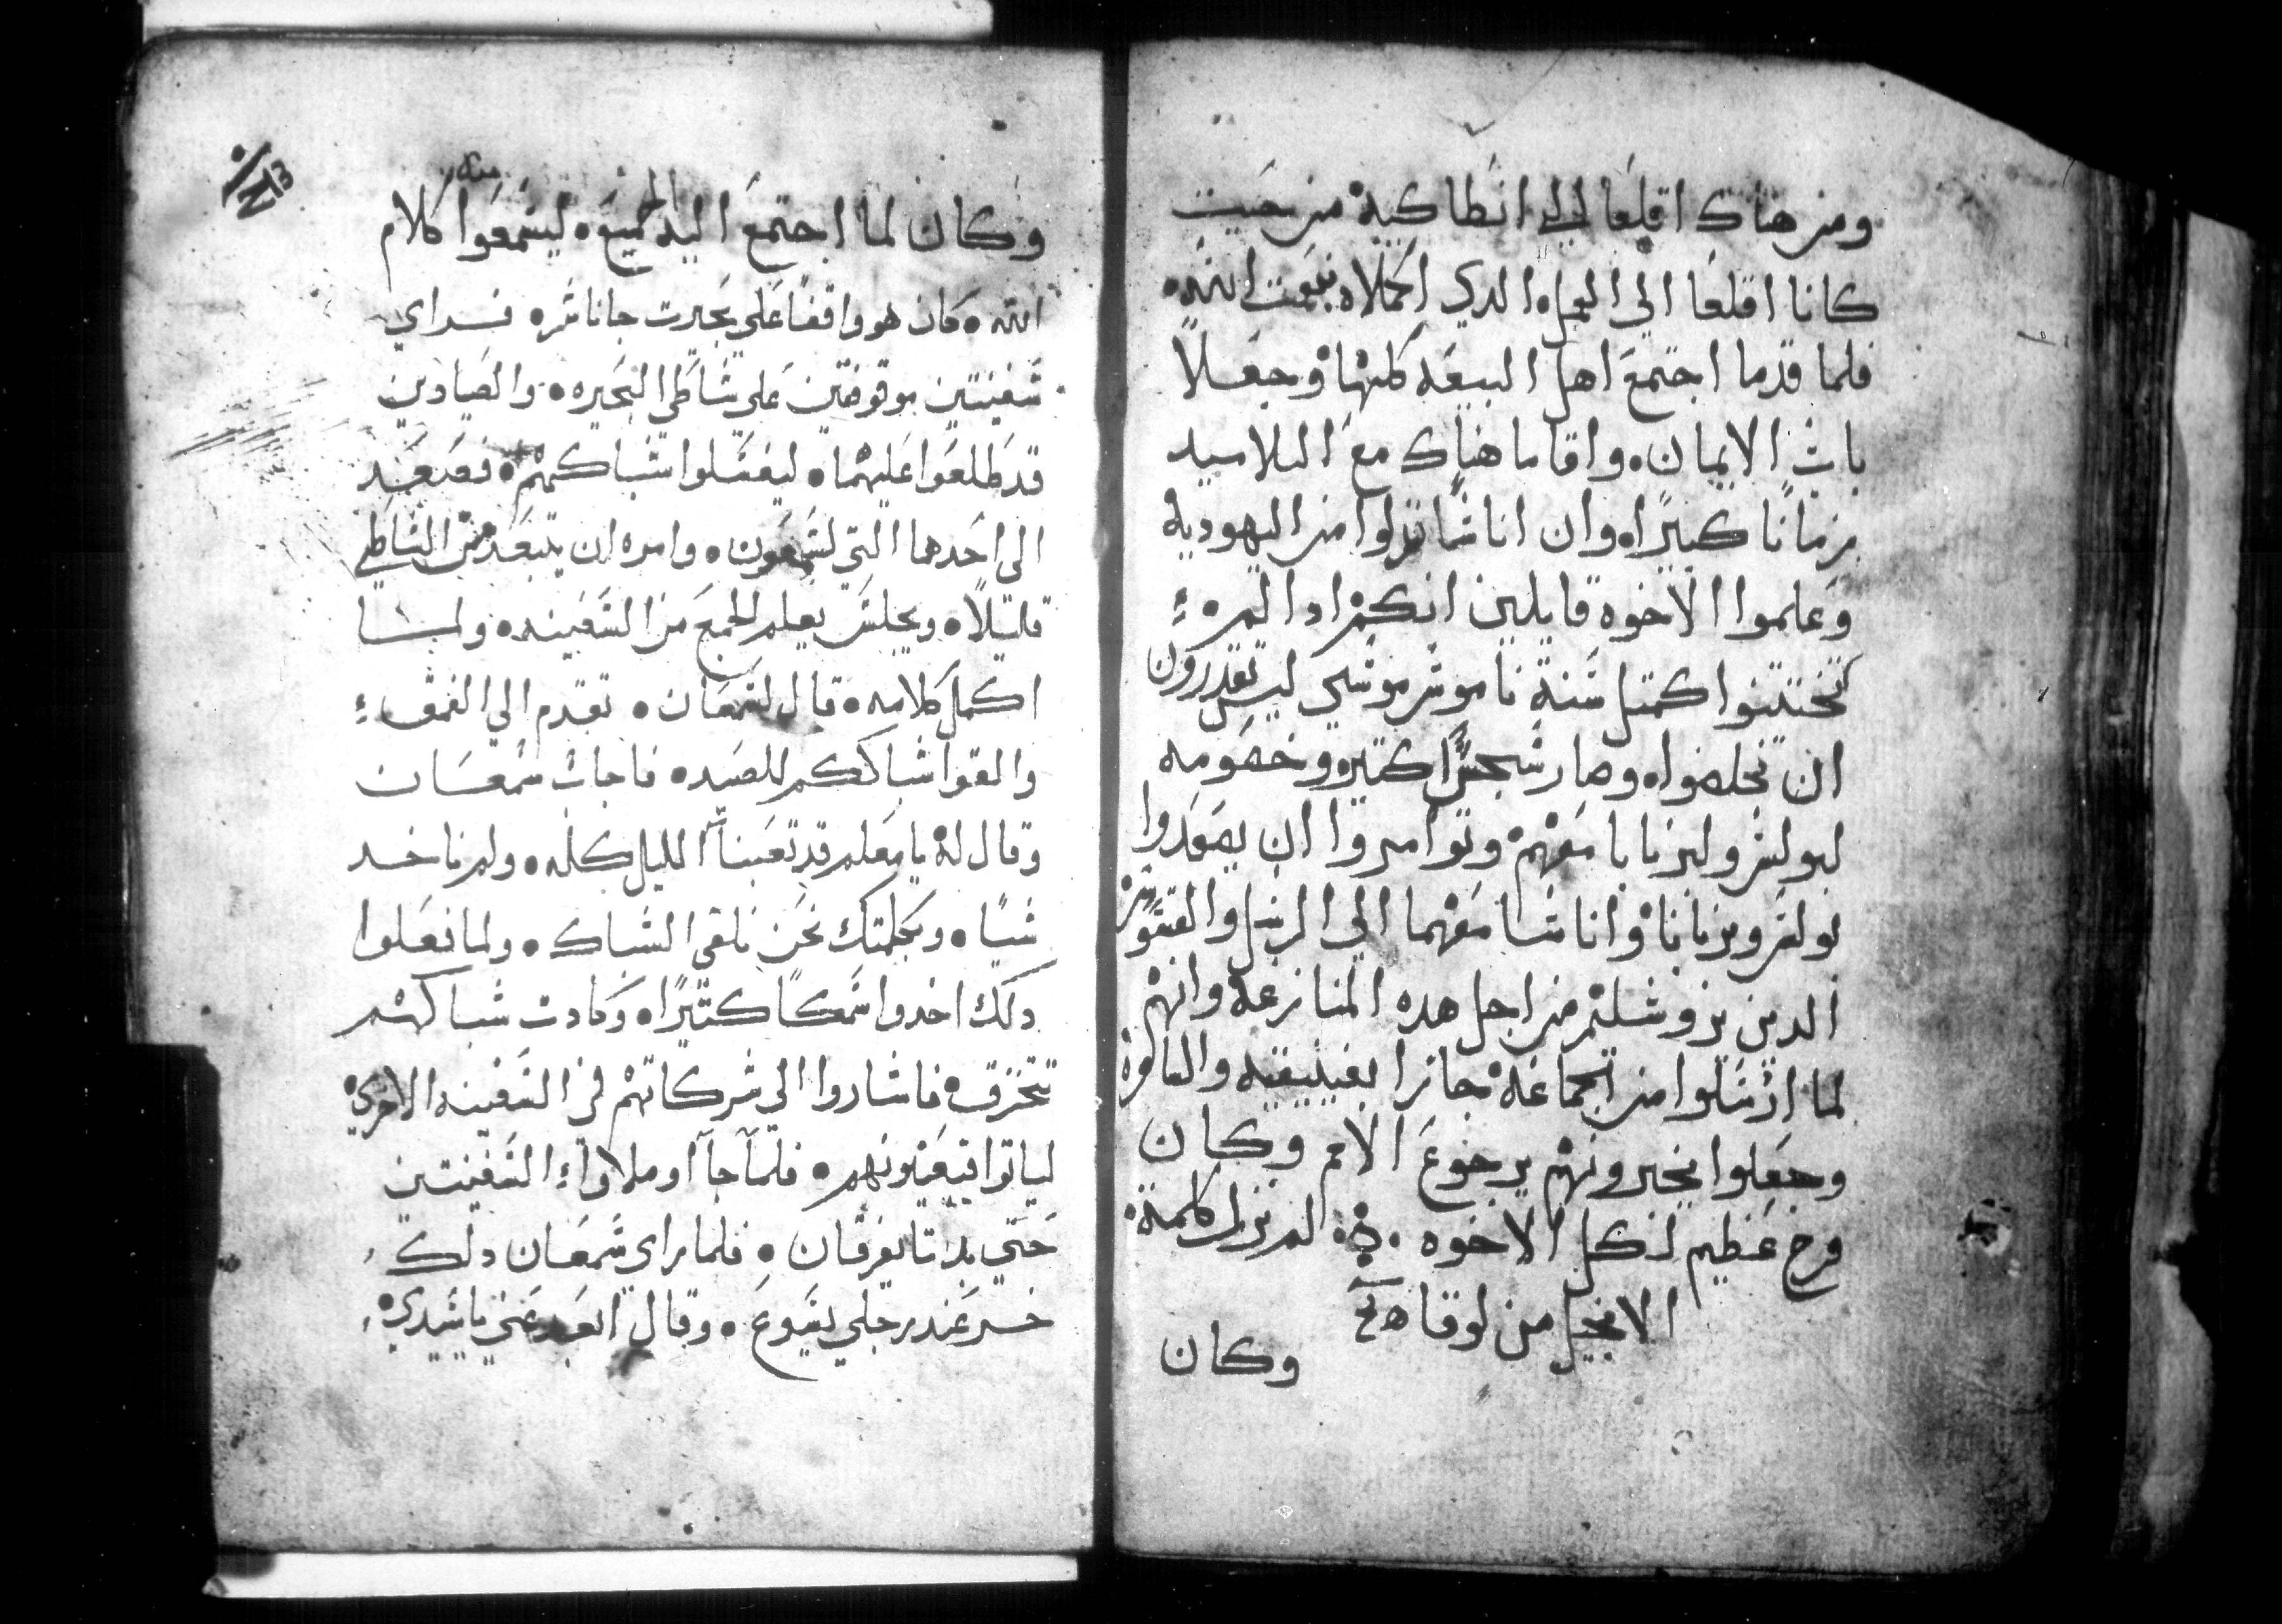 ومن هناك اقلعا الي انطاكية من حيت
كانا اقلعا الي العمل الدي اكملاه بنعمت الله
فلما قدما اجتمع اهل البيعه كلها وجعلا
باب الايمان واقاما هناك مع التلاميد
زمانا كبيرا وان اناسا نزلوا من اليهودية
وعلموا الاخوه قايلين انكم ادا لم
تختتنوا كمتل سنة ناموس موسي ليس تقدرون
ان تخلصوا وصار سجسا كتير وخصومه
لبولس ولبرنابا معهم وتوامروا ان يصعدوا
بولس وبرنابا واناسا معهما الي الرسل والقسوس
الدين بروشليم من اجل هده المنازعة وانهم
لما ارسلوا من الجماعة جازوا بفينيقيه والسامرة
وجعلوا يخبرونهم برجوع الامم وكان
فرح عظيم لكل الاخوه لم تزل كلمة
الانجيل من لوقا
وكان
وكان لما اجتمع اليه الجميع ليسمعوا كلام
الله كان هو واقفا علي بحيرت جاناسر فراي
سفينتين موقوفتين علي شاطي البحيره والصيادين
قد طلعوا عليهما ليغسلوا شباكهم فصعد
الي احدهما التي لسمعون وامره ان يتبعد من الشاطي
قليلا وجلس يعلم الجمع من السفينه ولما
اكمل كلامه قال لسمعان تقدم الي الغمق
والقوا شباككم للصيد فاجاب سمعان
وقال له يا معلم قد تعبنا الليل كله ولم ناخد
شيا وبكلمتك نحن نلقي الشباك ولما فعلوا
دلك اخدوا سمكا كتيرا وكادت شباكهم
تتخرق فاشاروا الي شركاتهم في السفينه الاخري
لياتوا فيعينونهم فلما جاآو ملاوا السفينتين
حتي بدتا يغرقان فلما راي سمعان دلك
خر عند رجلي يسوع وقال ابعد عني يا سيدي